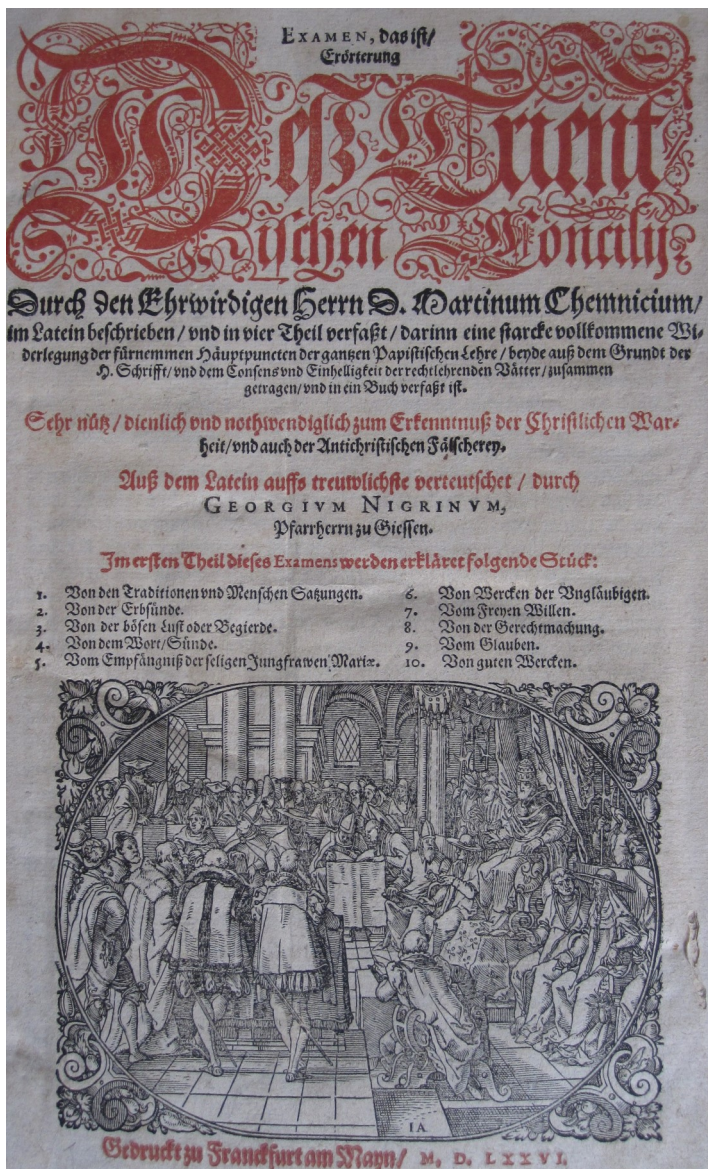 EXAMEN, das ist/
Erörterung
Deß Trient
Dischen Concilij
Durch den Ehrwirdigen Herrn D. Martinum Chemnicium/
im Latein beschrieben/ vnd in vier Theil verfaßt/ darinn eine starcke vollkommene Wi-
derlegung der fürnemmen Häuptpuncten der gantzen Papistischen Lehre/ beyde auß dem Grundt der
H. Schrifft/ vnd dem Consens vnd Einhelligkeit der rechtlehrenden Vätter/ zusammen
getragen/ vnd in ein Buch verfaßt ist.
Sehr nütz/ dienlich vnd nothwendiglich zum Erkenntnuß der Christlichen War-
heit/ vnd auch der Antichristischen Fälscherey.
Auß dem Latein auffs treuwlichste verteutschet/ durch
GEORGIVM NIGRINVM,
Pfarrherrn zu Giessen.
Im ersten Theil dieses Examens werden erkläret folgende Stück:
1. Von den Traditionen vnd Menschen Satzungen.
2. Von der Erbsünde.
3. Von der bösen Lust oder Begierde.
4. Von dem Wort/ Sünde.
5. Vom Empfängniß der seligen Jungfrawen Mariæ.
6. Von Wercken der Vngläubigen.
7. Vom Freyen Willen.
8. Von der Gerechtmachung.
9. Vom Glauben.
10. Von guten Wercken.
IA
Gedruckt zu Franckfurt am Mayn/ M. D. LXXVI.